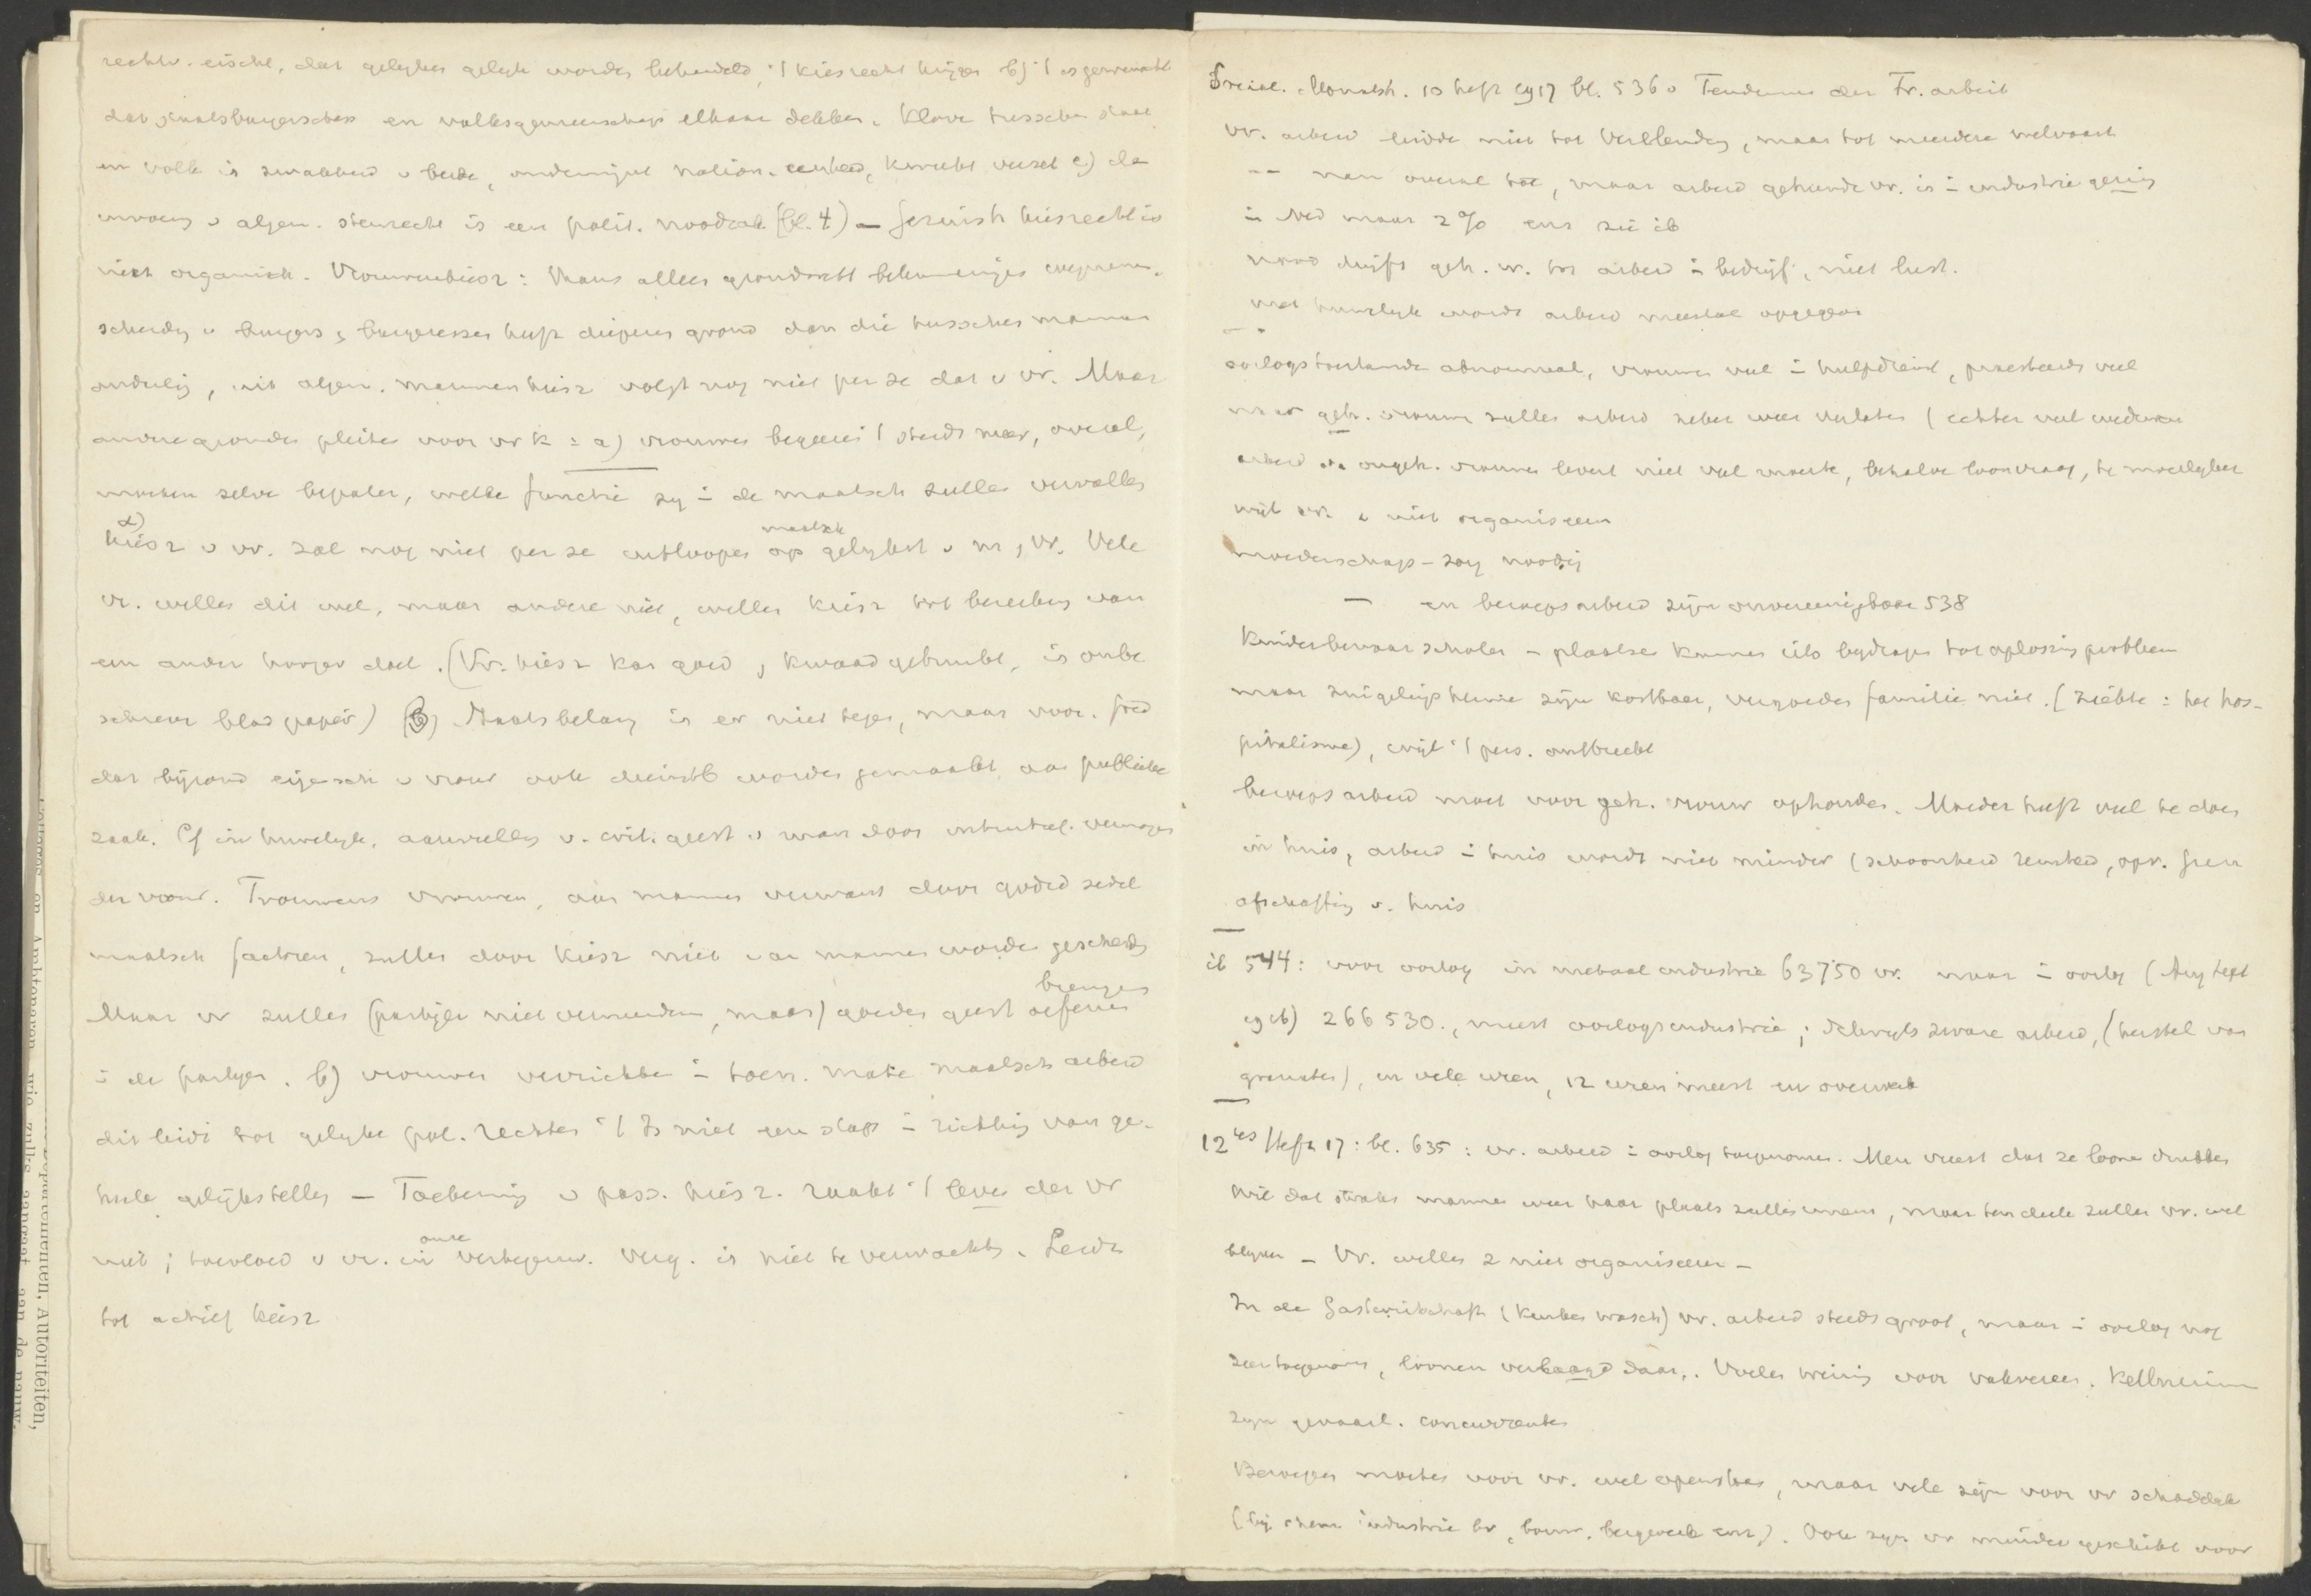 rechtv. eischt, dat gelijken gelijk worden behandeld, 't kiesrecht krijgen b) 't is gewenscht
dat staatsburgerschap en volksgemeenschap elkaar dekken. Klove tusschen staat
en volk is zwakheid v beide, ondermijnt nation. eenheid, kweekt verzet c) de
invoering v algem. stemrecht is een polit. noodzak. (bl. 4) — feministisch kiesrecht is
niet organisch. Vrouwenkiesr: thans alleen grondwett belemmeringen
scheiding v burgers & burgeressen heeft dieperen grond dan die tusschen mannen
onderling, uit algem. mannenkiesr volgt nog niet per se dat v vr. Maar
andere gronden pleiten voor vr k : a) vrouwen begeeren 't steeds meer, overal,
moeten zelve bepalen, welke functie zij in de maatsch zullen vervullen
α)
kiesr v vr. zal nog niet per se uitloopen op maatsch gelijkst v m, vr. Vele
vr. willen dit wel, maar andere niet, willen kiesr tot bereiking van
een ander hooger doel. (Vr. kiesr kan goed, kwaad gebruikt, is onbe
schreven blad papier) β) Staatsbelang is er niet tegen, maar voor. goed
dat bijzond eigensch v vrouw ook dienstb worden gemaakt aan publieke
zaak. Cf in huwelijk, aanvulling v. crit. geest v man door intuitief. vermogen
der vrouw. Trouwens vrouwen, aan mannen verwant door godsd zedel
maatsch factoren, zullen door kiesr niet van mannen worden gescheiden
Maar vr zullen (partijen niet vermeerderen, maar) goeden geest brengen oefenen
in de partijen. b) vrouwen verrichten in toen. mate maatsch arbeid
dit leidt tot gelijke pol. rechten 't Is niet een stap in richting van ge-
heele gelijkstelling — Toekenning v pass. kiesr. raakt 't leven der vr
niet; toevloed v vr. in onze vertegenw. verg. is niet te verwachten. Leidt
tot actief kiesr
Departementen, Autoriteiten,
Colleges en Ambtenaren, wie zulks aangaat, aan de nauw-
Social. Monatsh. 10 heft 1917 bl. 536 v Tendenzen der Fr. arbeit
vr. arbeid leidde niet tot Verelending, maar tot meerdere welvaart
-- nam overal toe, maar arbeid gehuwde vr. is in industrie gering
in Ned maar 2% enz zie ib
nood drijft geh. vr. tot arbeid in bedrijf, niet lust.
met huwelijk wordt arbeid meestal opgegeven
oorlogstoestande abnormaal, vrouwen veel in hulpdienst, presteerde veel
maar geh. vrouwen zullen arbeid zeker weer verlaten (echter veel weduwen
arbeid van ongeh. vrouwen levert niet veel moeite, behalve loonvraag, te moeilijker
wijl vr. z niet organiseeren
moederschaps-zorg noodig
— en beroepsarbeid zijn onvereenigbaar 538
Kinderbewaarscholen - plaatsen kunnen iets bijdragen tot oplossing probleem
maar zuigelingstehuizen zijn kostbaar, vergoeden familie niet. (ziekte: het hos-
pitalisme), wijl 't pers. ontbreekt
beroepsarbeid moet voor geh. vrouw ophouden. Moeder heeft veel te doen
in huis, arbeid in huis wordt niet minder (schoonheid reinheid, opv. geen
afschaffing v. huis
ib 544: voor oorlog in metaalindustrie 63750 vr. maar in oorlog (Aug Sept
1916) 266 530., meest oorlogsindustrie; dikwijls zware arbeid, (herstel van
granaten), en vele uren, 12 uren meest en overwerk
12tes Heft 17: bl. 635: vr. arbeid in oorlog toegenomen. Men vreest dat ze loonen drukken
wil dat straks mannen weer haar plaats zullen innemen, maar ten deele zullen vr. wel
blijven - Vr. willen z niet organiseeren -
In de Gastwirtschaft (keuken wasch) vr. arbeid steeds groot, maar in oorlog nog
zeer toegenomen, loonen verlaagd daar. Voelen weinig voor vakvereen. Kellnerinnen
zijn gevaarl. concurrenten
Beroepen moeten voor vr. wel openstaan, maar vele zijn voor vr schadelijk
(bij chem industrie bv, bouw, bergwerk enz). Ook zijn vr minder geschikt voor